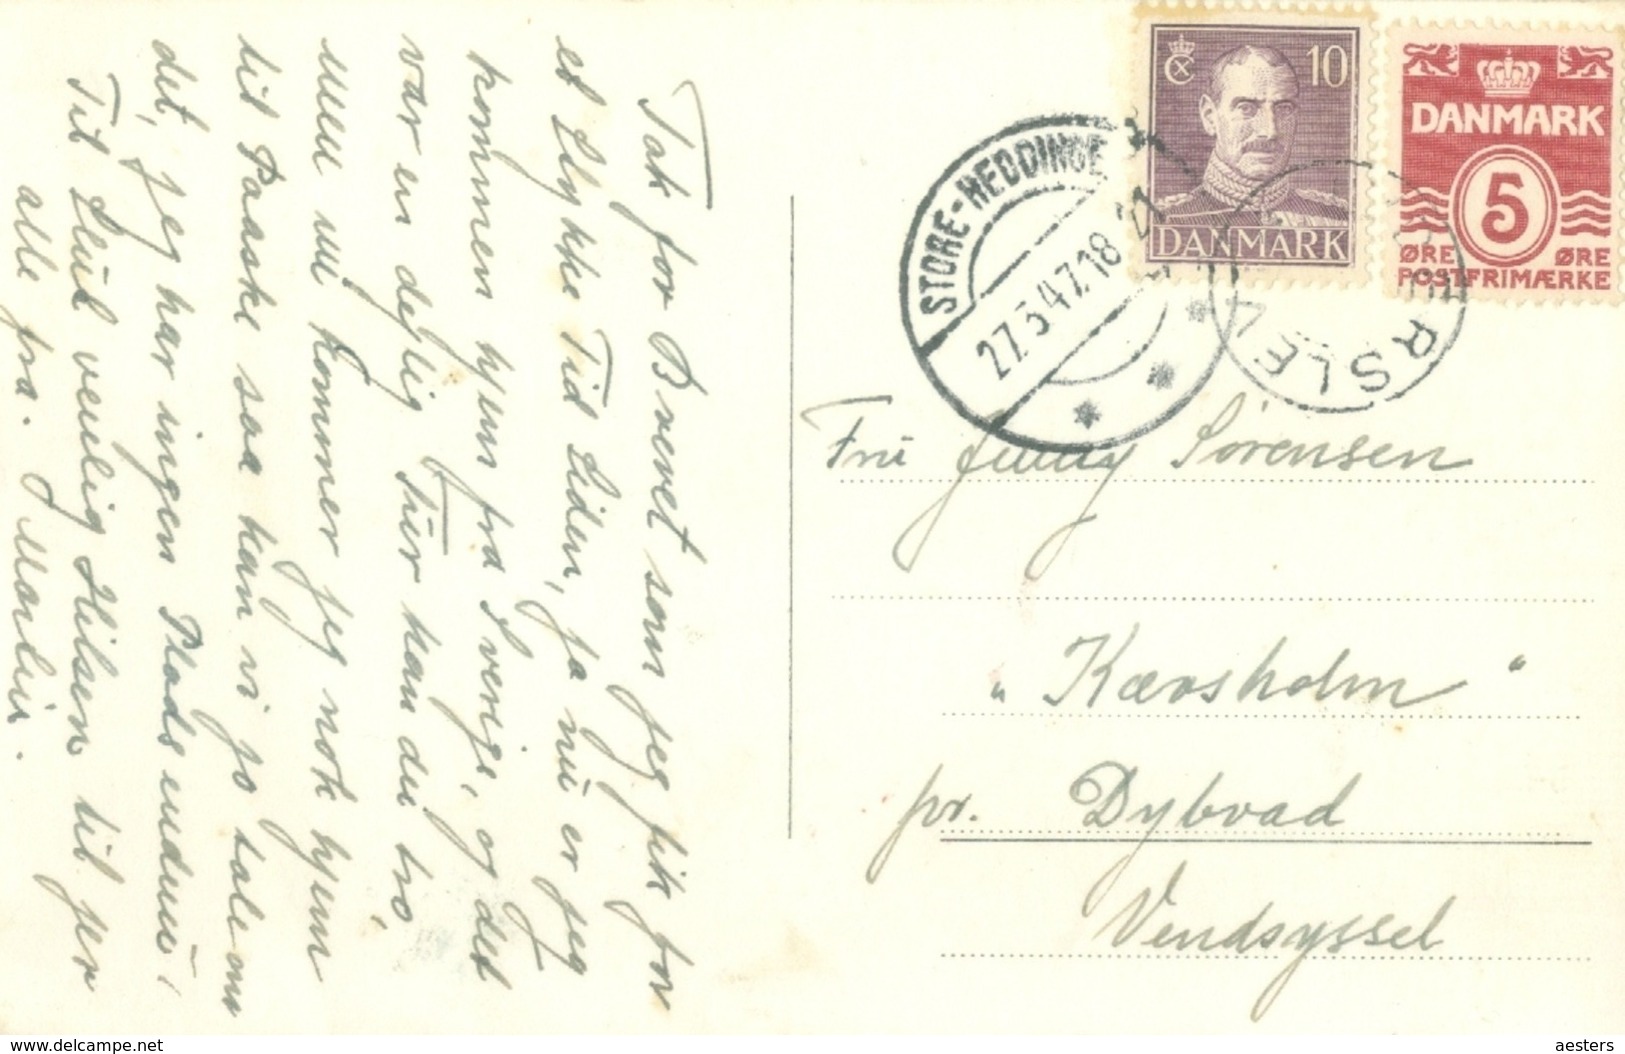 Tak for Brevet som jeg fik for
et Stykke Tid siden, ja nu er jeg
kommen hjem fra Sverige, og det
var en dejlig Tur kan du tro,
men nu kommer jeg nok hjem
til Paaske saa kan vi jo tale om
det, jeg har ingen Plads endnu!
Til Slut venlig Hilsen til jer
alle fra
10
DANMARK
DANMARK
5
ØRE ØRE
POSTFRIMÆRKE
STORE-HEDDINGE
27.3.47.18
Fru Jenny Sørensen
„Kævsholm"
pr. Dybvad
Vendsyssel
www.delcampe.net
aesters